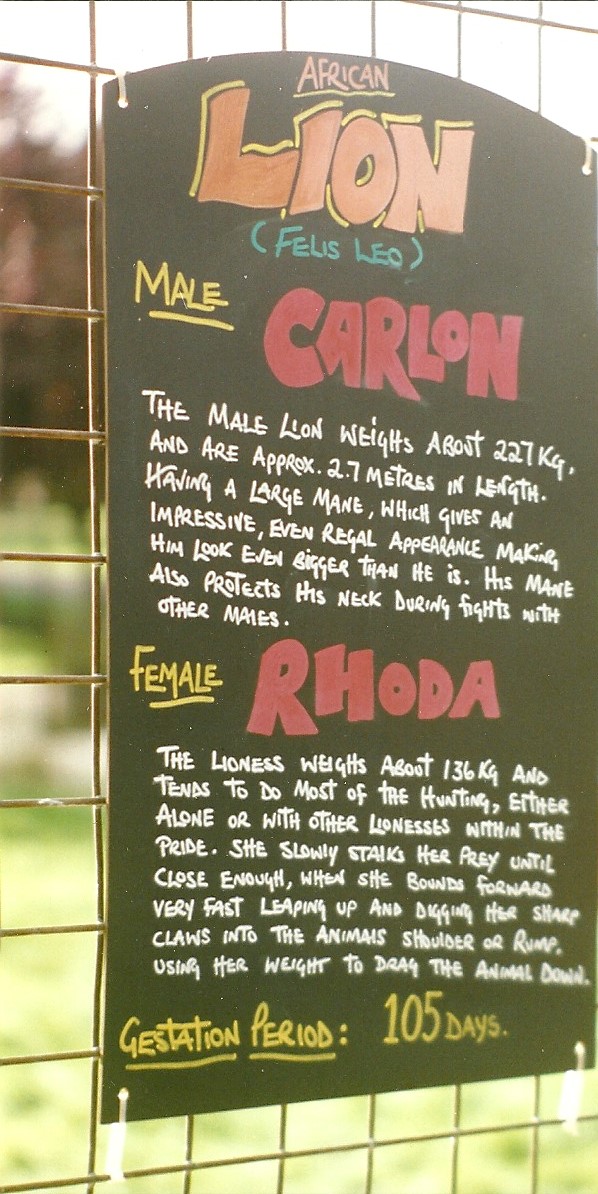 AFRICAN
LION
(FELIS LEO)
MALE
CARLON
THE MALE LION WEIGHS ABOUT 227 KG,
AND ARE APPROX. 2.7 METRES IN LENGTH.
HAVING A LARGE MANE, WHICH GIVES AN
IMPRESSIVE, EVEN REGAL APPEARANCE MAKING
HIM LOOK EVEN BIGGER THAN HE IS. HIS MANE
ALSO PROTECTS HIS NECK DURING FIGHTS WITH
OTHER MALES.
FEMALE
RHODA
THE LIONESS WEIGHS ABOUT 136 KG AND
TENDS TO DO MOST OF THE HUNTING, EITHER
ALONE OR WITH OTHER LIONESSES WITHIN THE
PRIDE. SHE SLOWLY STALKS HER PREY UNTIL
CLOSE ENOUGH, WHEN SHE BOUNDS FORWARD
VERY FAST LEAPING UP AND DIGGING HER SHARP
CLAWS INTO THE ANIMALS SHOULDER OR RUMP,
USING HER WEIGHT TO DRAG THE ANIMAL DOWN.
GESTATION PERIOD: 105 DAYS.